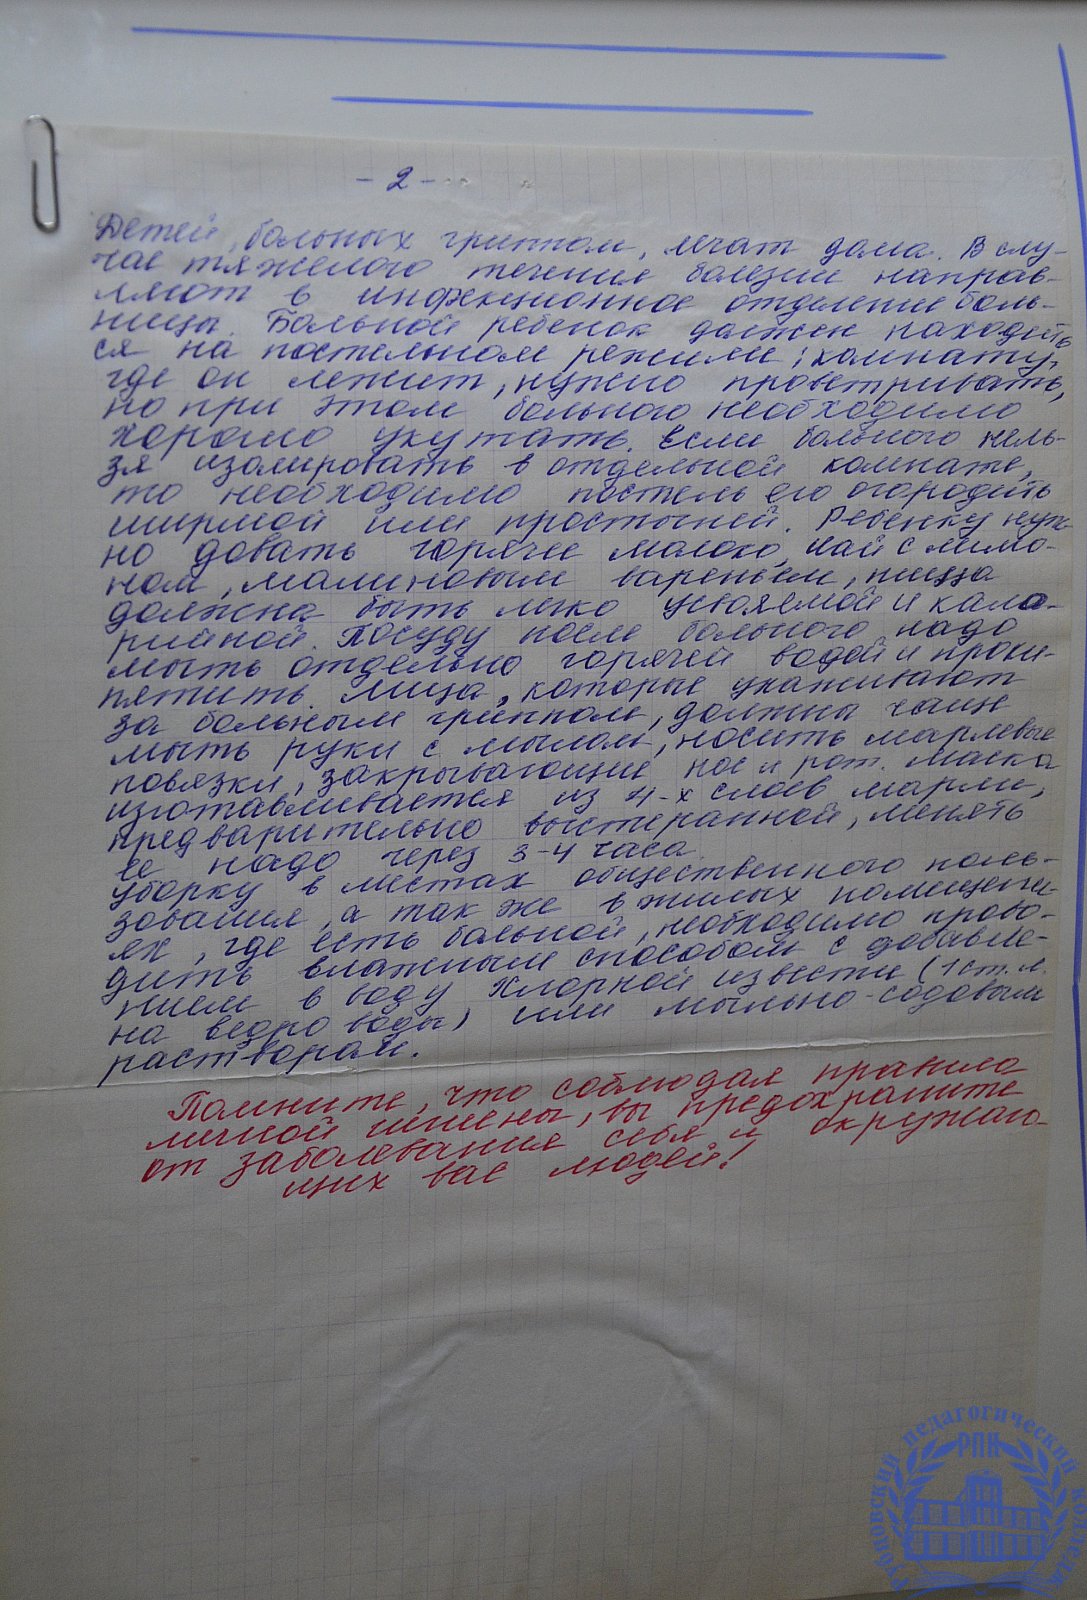 - 2 -
Детей, больных гриппом, лечат дома. В слу-
чае тяжелого течения болезни направ-
ляют в инфекционное отделение боль-
ницы. Больной ребенок должен находить
ся на постельном режиме; комнату,
где он лежит, нужно проветривать,
но при этом больного необходимо
хорошо укутать. Если больного нель-
зя изолировать в отдельной комнате,
то необходимо постель его огородить
ширмой или простыней. Ребенку нуж-
но давать горячее молоко, чай с лимо-
ном, малиновым вареньем, пища
должна быть легко усвояемой и кало-
рийной. Посуду после больного надо
мыть отдельно горячей водой и проки-
пятить. Лица, которые ухаживают
за больным гриппом, должны чаще
мыть руки с мылом, носить марлевые
повязки, закрывающие нос и рот. Маска
изготавливается из 4-х слоев марли,
предварительно выстеранной, менять
ее надо через 3-4 часа.
Уборку в местах общественного поль-
зования, а так же в жилых помещени-
ях, где есть больной, необходимо прово-
дить влажным способом с добавле-
нием в воду хлорной извести (1 ст. л.
на ведро воды) или мыльно-содовым
раствором.
Помните, что соблюдая правила
личной гигиены, вы предохраните
от заболевания себя и окружаю-
щих вас людей!
Рубцовский педагогический колледж
РПК